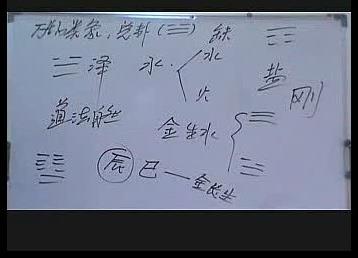 万物类象，兑卦（☱） 缺
☱ 泽 水 水
火
盐
刚
道法自然
金生水
辰 巳 — 金长生